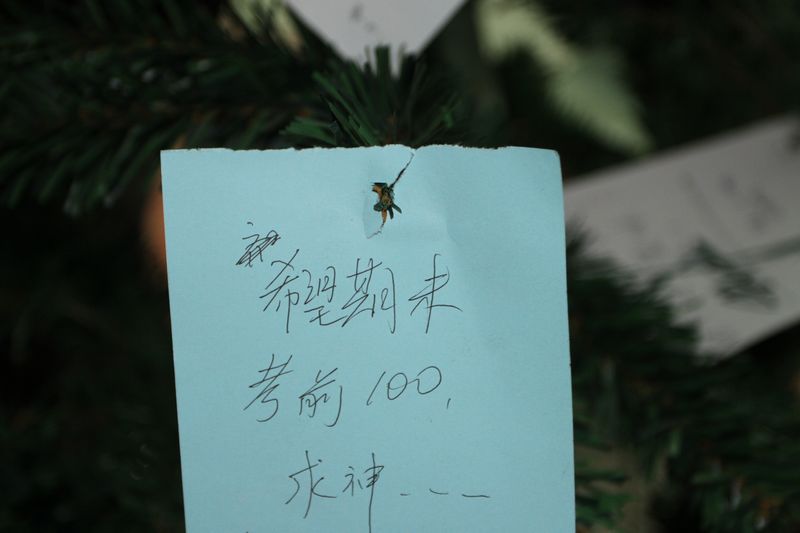 希望期末
考前100,
求神---